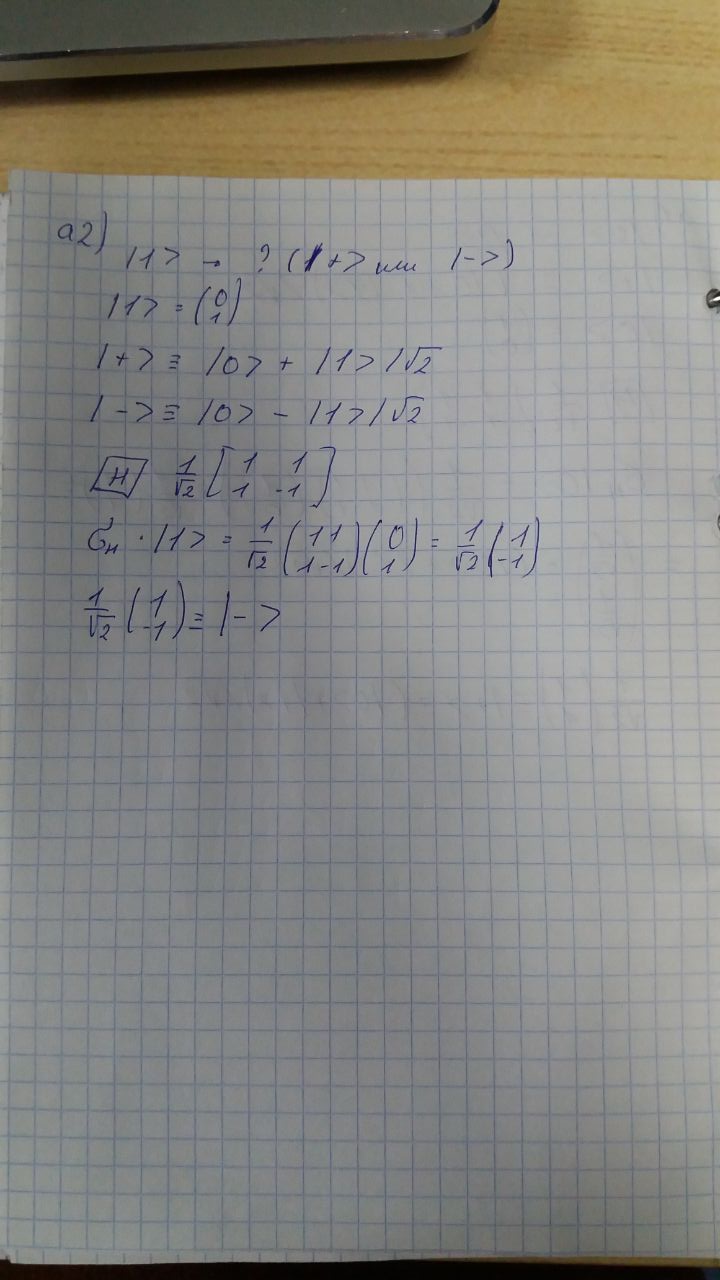 a2)
|1> → ? (|+> или |->)
|1> = (0 1)
|+> ≡ |0> + |1> /√2
|-> ≡ |0> - |1> /√2
H 1/√2 [1 1 1 -1]
σн · |1> = 1/√2 (1 1 1 -1) (0 1) = 1/√2 (1 -1)
1/√2 (1 -1) ≡ |->